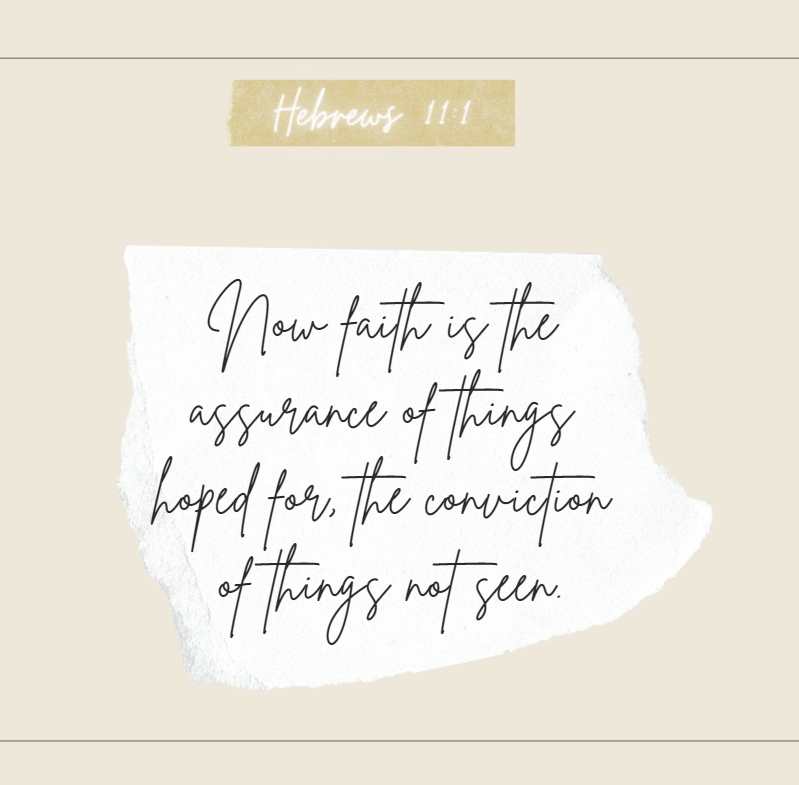 Hebrews 11:1
Now faith is the
assurance of things
hoped for, the conviction
of things not seen.